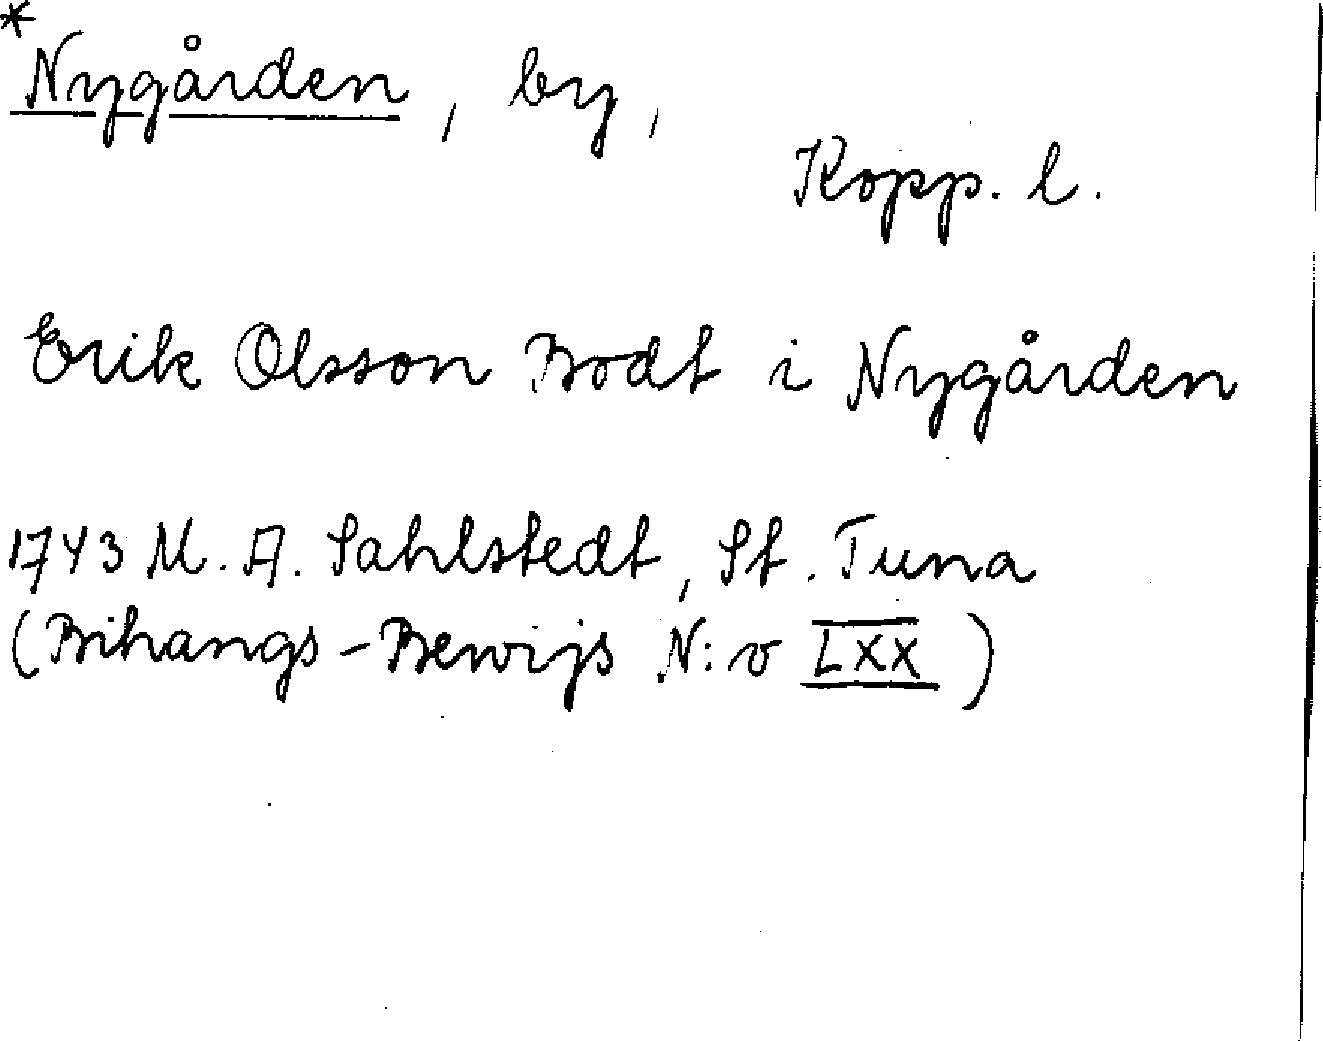 *
Nygården, by,
Kopp. l.
Erik Olsson Bodt i Nygården
1743 M. A. Sahlstedt, St. Tuna
(Bihangs-Bewijs N:o LXX)